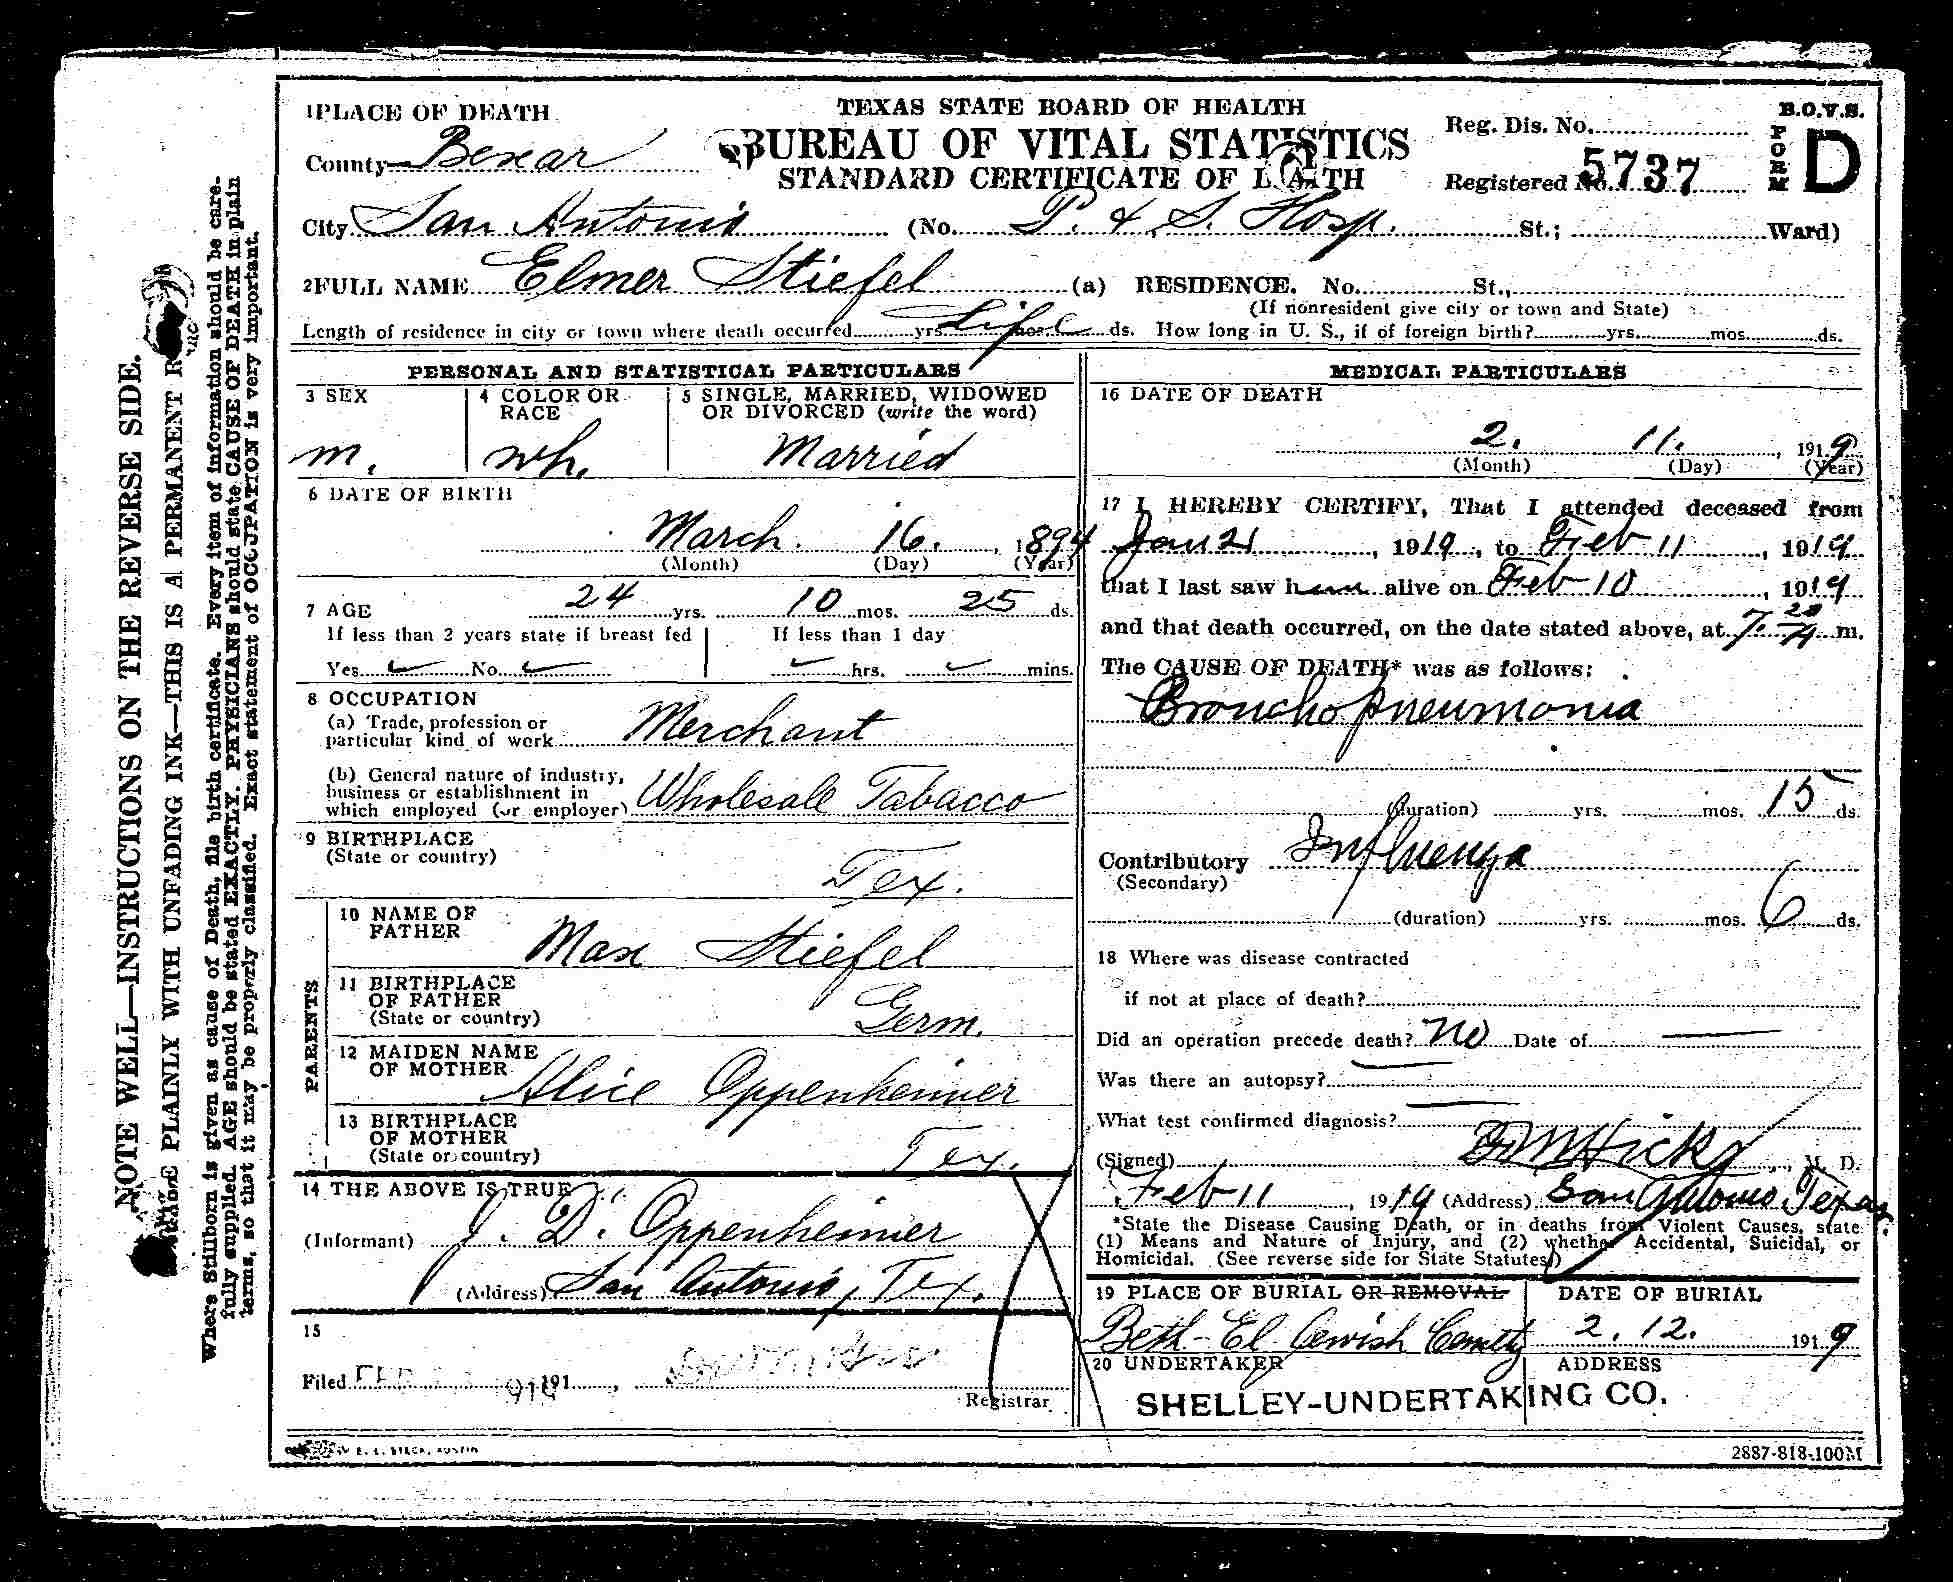 NOTE WELL—INSTRUCTIONS ON THE REVERSE SIDE.
PLAINLY WITH UNFADING INK—THIS IS A PERMANENT
Where Stillborn is given as cause of Death, file birth certificate. Every item of information should be care-
fully supplied. AGE should be stated EXACTLY. PHYSICIANS should state CAUSE OF DEATH in plain
terms, so that it may be properly classified. Exact statement of OCCUPATION is very important.
1 PLACE OF DEATH
TEXAS STATE BOARD OF HEALTH
BUREAU OF VITAL STATISTICS
STANDARD CERTIFICATE OF DEATH
B.O.V.S.
FORM D
Reg. Dis. No.
County Bexar
Registered No. 5737
City San Antonio (No. P. & S. Hosp. St.; Ward)
2 FULL NAME Elmer Stiefel (a) RESIDENCE. No. St.,
(If nonresident give city or town and State)
Length of residence in city or town where death occurred yrs. Life mos. ds. How long in U. S., if of foreign birth? yrs. mos. ds.
PERSONAL AND STATISTICAL PARTICULARS
3 SEX
m.
4 COLOR OR RACE
wh.
5 SINGLE, MARRIED, WIDOWED
OR DIVORCED (write the word)
Married
6 DATE OF BIRTH
March 16. , 1894
(Month) (Day) (Year)
7 AGE 24 yrs. 10 mos. 25 ds.
If less than 2 years state if breast fed
If less than 1 day
Yes No hrs. mins.
8 OCCUPATION
(a) Trade, profession or
particular kind of work Merchant
(b) General nature of industry,
business or establishment in
which employed (or employer) Wholesale Tabacco
9 BIRTHPLACE
(State or country) Tex.
PARENTS
10 NAME OF
FATHER Max Stiefel
11 BIRTHPLACE
OF FATHER
(State or country) Germ.
12 MAIDEN NAME
OF MOTHER Alice Oppenheimer
13 BIRTHPLACE
OF MOTHER
(State or country) Tex.
14 THE ABOVE IS TRUE
(Informant) J. D. Oppenheimer
(Address) San Antonio, Tex.
15
Filed FEB 1919 191 ,
Registrar
MEDICAL PARTICULARS
16 DATE OF DEATH
2. 11. , 1919
(Month) (Day) (Year)
17 I HEREBY CERTIFY, That I attended deceased from
Jan 21 , 1919, to Feb 11 , 1919
that I last saw him alive on Feb 10 , 1919
and that death occurred, on the date stated above, at 7.20 A m.
The CAUSE OF DEATH* was as follows:
Bronchopneumonia
(duration) yrs. mos. 15 ds.
Contributory Influenza
(Secondary)
(duration) yrs. mos. 6 ds.
18 Where was disease contracted
if not at place of death?
Did an operation precede death? No Date of —
Was there an autopsy?
What test confirmed diagnosis?
(Signed) Hicks , M. D.
Feb 11 , 1919 (Address) San Antonio Texas
*State the Disease Causing Death, or in deaths from Violent Causes, state
(1) Means and Nature of Injury, and (2) whether Accidental, Suicidal, or
Homicidal. (See reverse side for State Statutes)
19 PLACE OF BURIAL OR REMOVAL
Beth-El Jewish Cemety
DATE OF BURIAL
2. 12. 1919
20 UNDERTAKER
ADDRESS
SHELLEY-UNDERTAKING CO.
E. L. STECK, AUSTIN
2887-818-100M